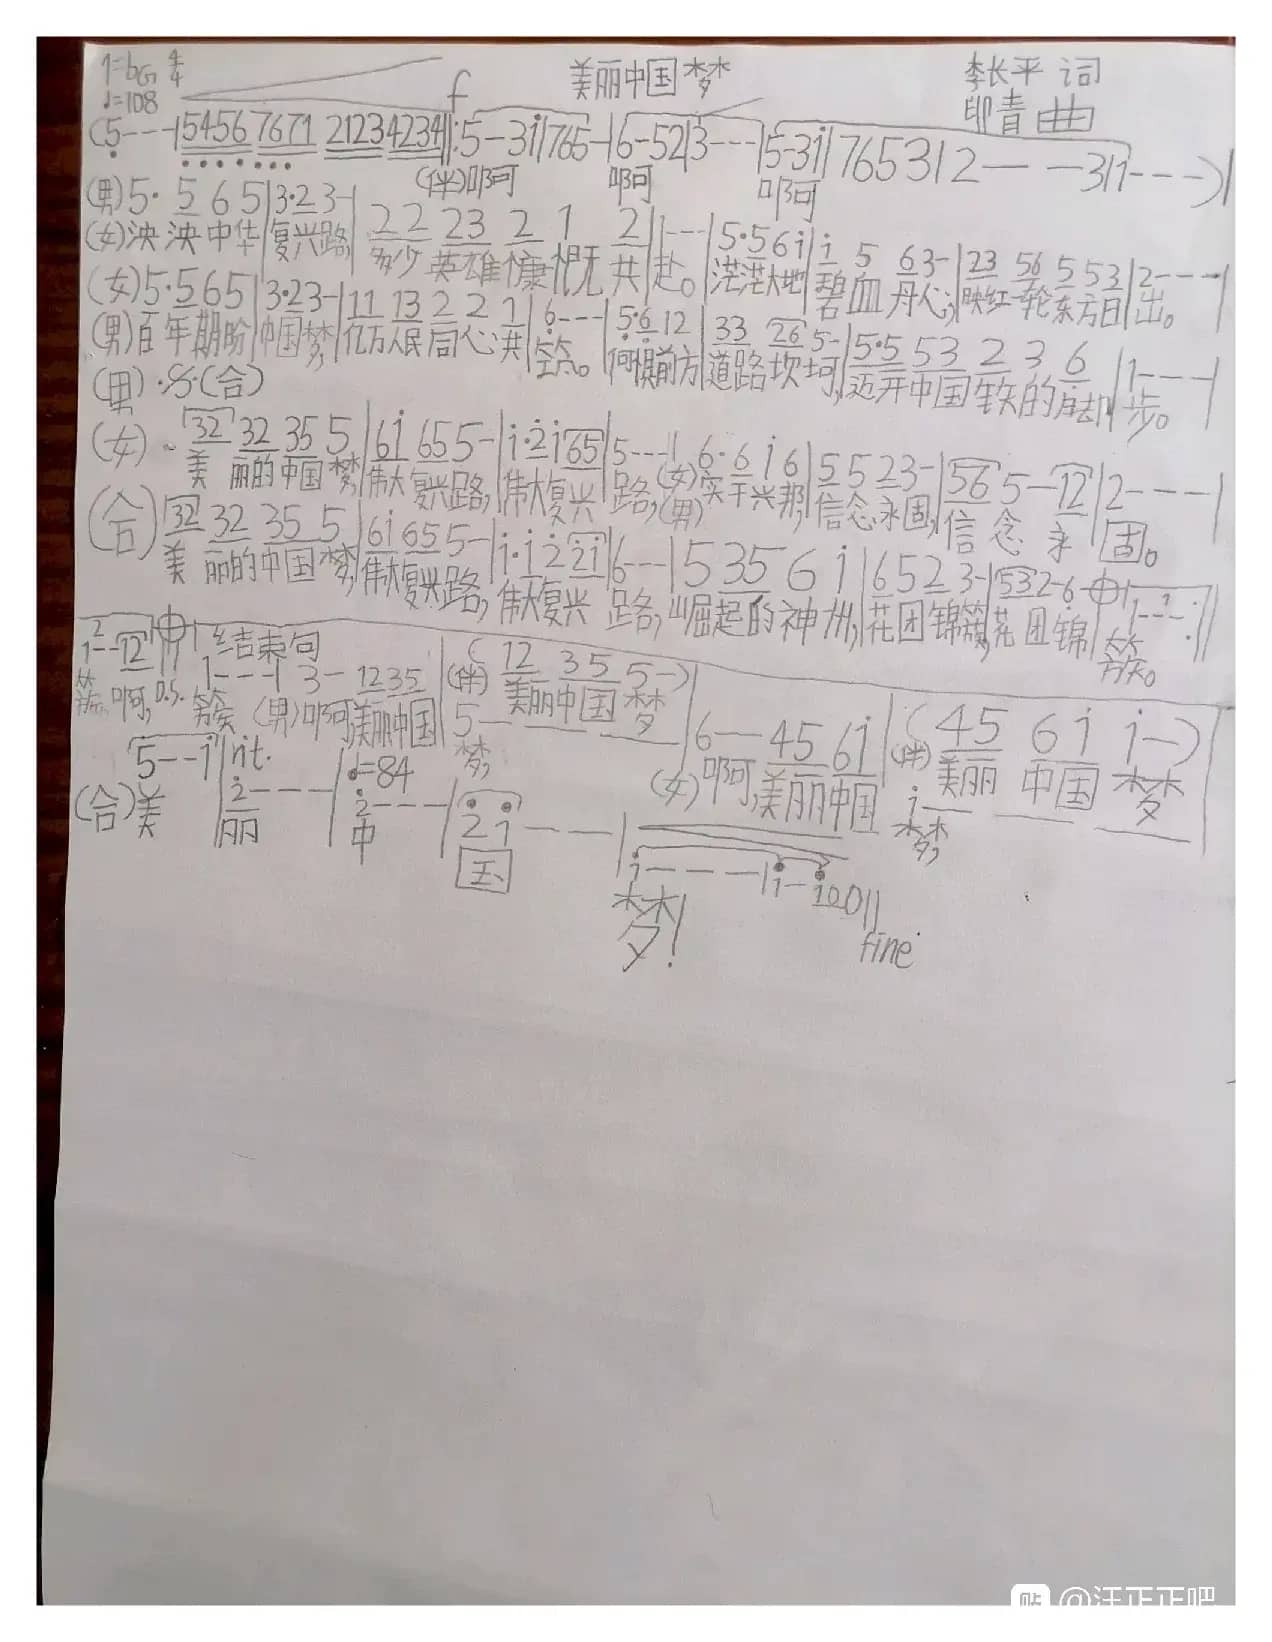 1=bG 4/4 美丽中国梦 李长平 词
♩=108 f 印青 曲
(5---|5456 7671 2123 4234‖:5-3i|765-|6-52|3---|5-3i|76531|2---31|1---)|
(伴)啊 啊 啊
(男)5· 5 6 5|3·2 3-|22 23 2 1 2|1---|5·5 6 i|i 5 6 3-|23 56 5 53|2---|
(女)泱泱中华|复兴路,|多少英雄慷慨无共|赴。|茫茫大地|碧血丹心,|映红一轮东方日|出。
(女)5·5 6 5|3·2 3-|11 13 2 2 1|6---|5·6 12|33 26 5-|5·5 53 2 3 6|1---|
(男)百年期盼|中国梦,|亿万人民同心共|筑。|何惧前方|道路坎坷,|迈开中国铁的脚|步。
(男)·𝄋·(合)
(女) 32 32 35 5|6i 65 5-|i·2 i 65|5---|6·6 i 6|5 5 2 3-|56 5-12|2---|
美丽的中国梦,|伟大复兴路,|伟大复兴|路,(女)(男)实干兴邦,|信念永固,|信念永|固。
(合)32 32 35 5|6i 65 5-|i·i 2 2i|6---|5 35 6 i|6 5 2 3-|53 2-6|1---:‖
美丽的中国梦,|伟大复兴路,|伟大复兴|路,|崛起的神州,|花团锦簇,|花团锦|簇。
1--12 结束句
簇。啊, D.S. 1---|3-1235|(伴)(12 35 5-)|
簇 (男)啊,美丽中国 美丽中国梦
5- 梦, 6--45 6i|(伴)(45 6i i-)
(女)啊,美丽中国 美丽中国梦
i- 梦,
5--i|rit. 2---|♩=84 2---|2i---|i---|i-i00‖
(合)美 丽 中 国 梦!
fine
贴 @汪正正吧